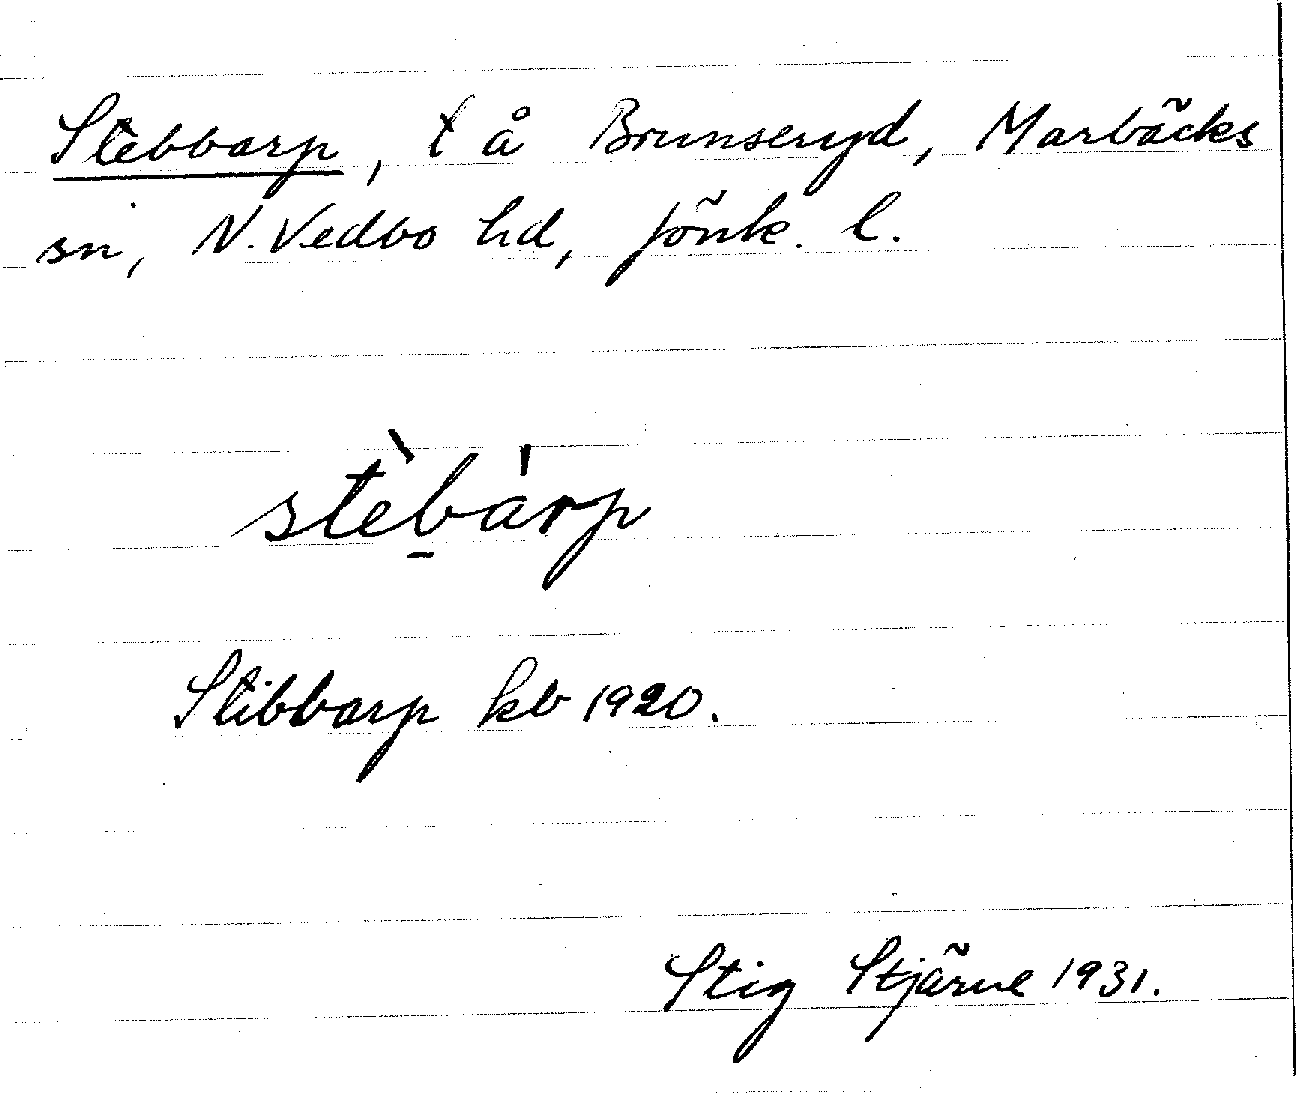 Stebbarp, t å Brunseryd, Marbäcks
sn, N. Vedbo hd, Jönk. l.
stèb̲árp
Stibbarp kb 1920.
Stig Stjärne 1931.